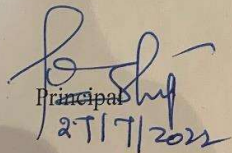 Principal
27/7/2022